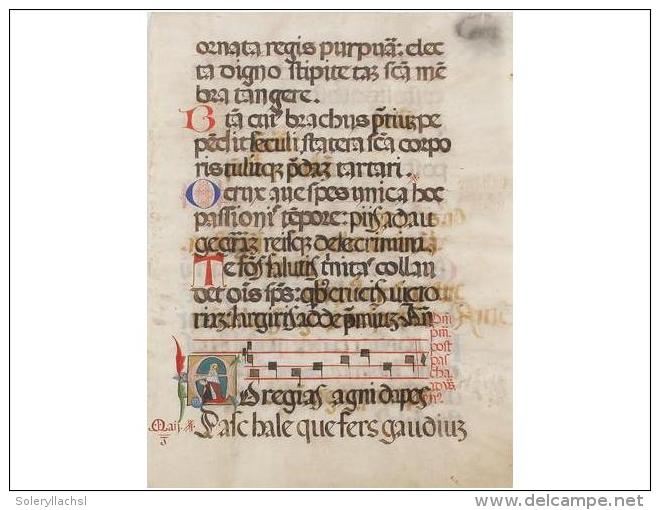 ornata regis purpura: elec
ta digno stipite taꝫ scā mē
bra tangere.
Bta cui9 brachiis p̄tiuꝫ pe
pēdit seculi statera scā corpo
ris tulitqꝫ p̄daꝫ tartari.
O crux aue spes unica hoc
passionis tēpore: piis adau
ge gr̄aꝫ reisqꝫ dele crimina
Te fōs salutis t̄nitas collau
det ōis sp̄s: qb9 crucis uicto
riaꝫ largiris adde p̄miuꝫ. Am̄
post
pas
cha
regias agni dapes
Paschale que fers gaudiuꝫ
Soleryllachsl
delcampe.net